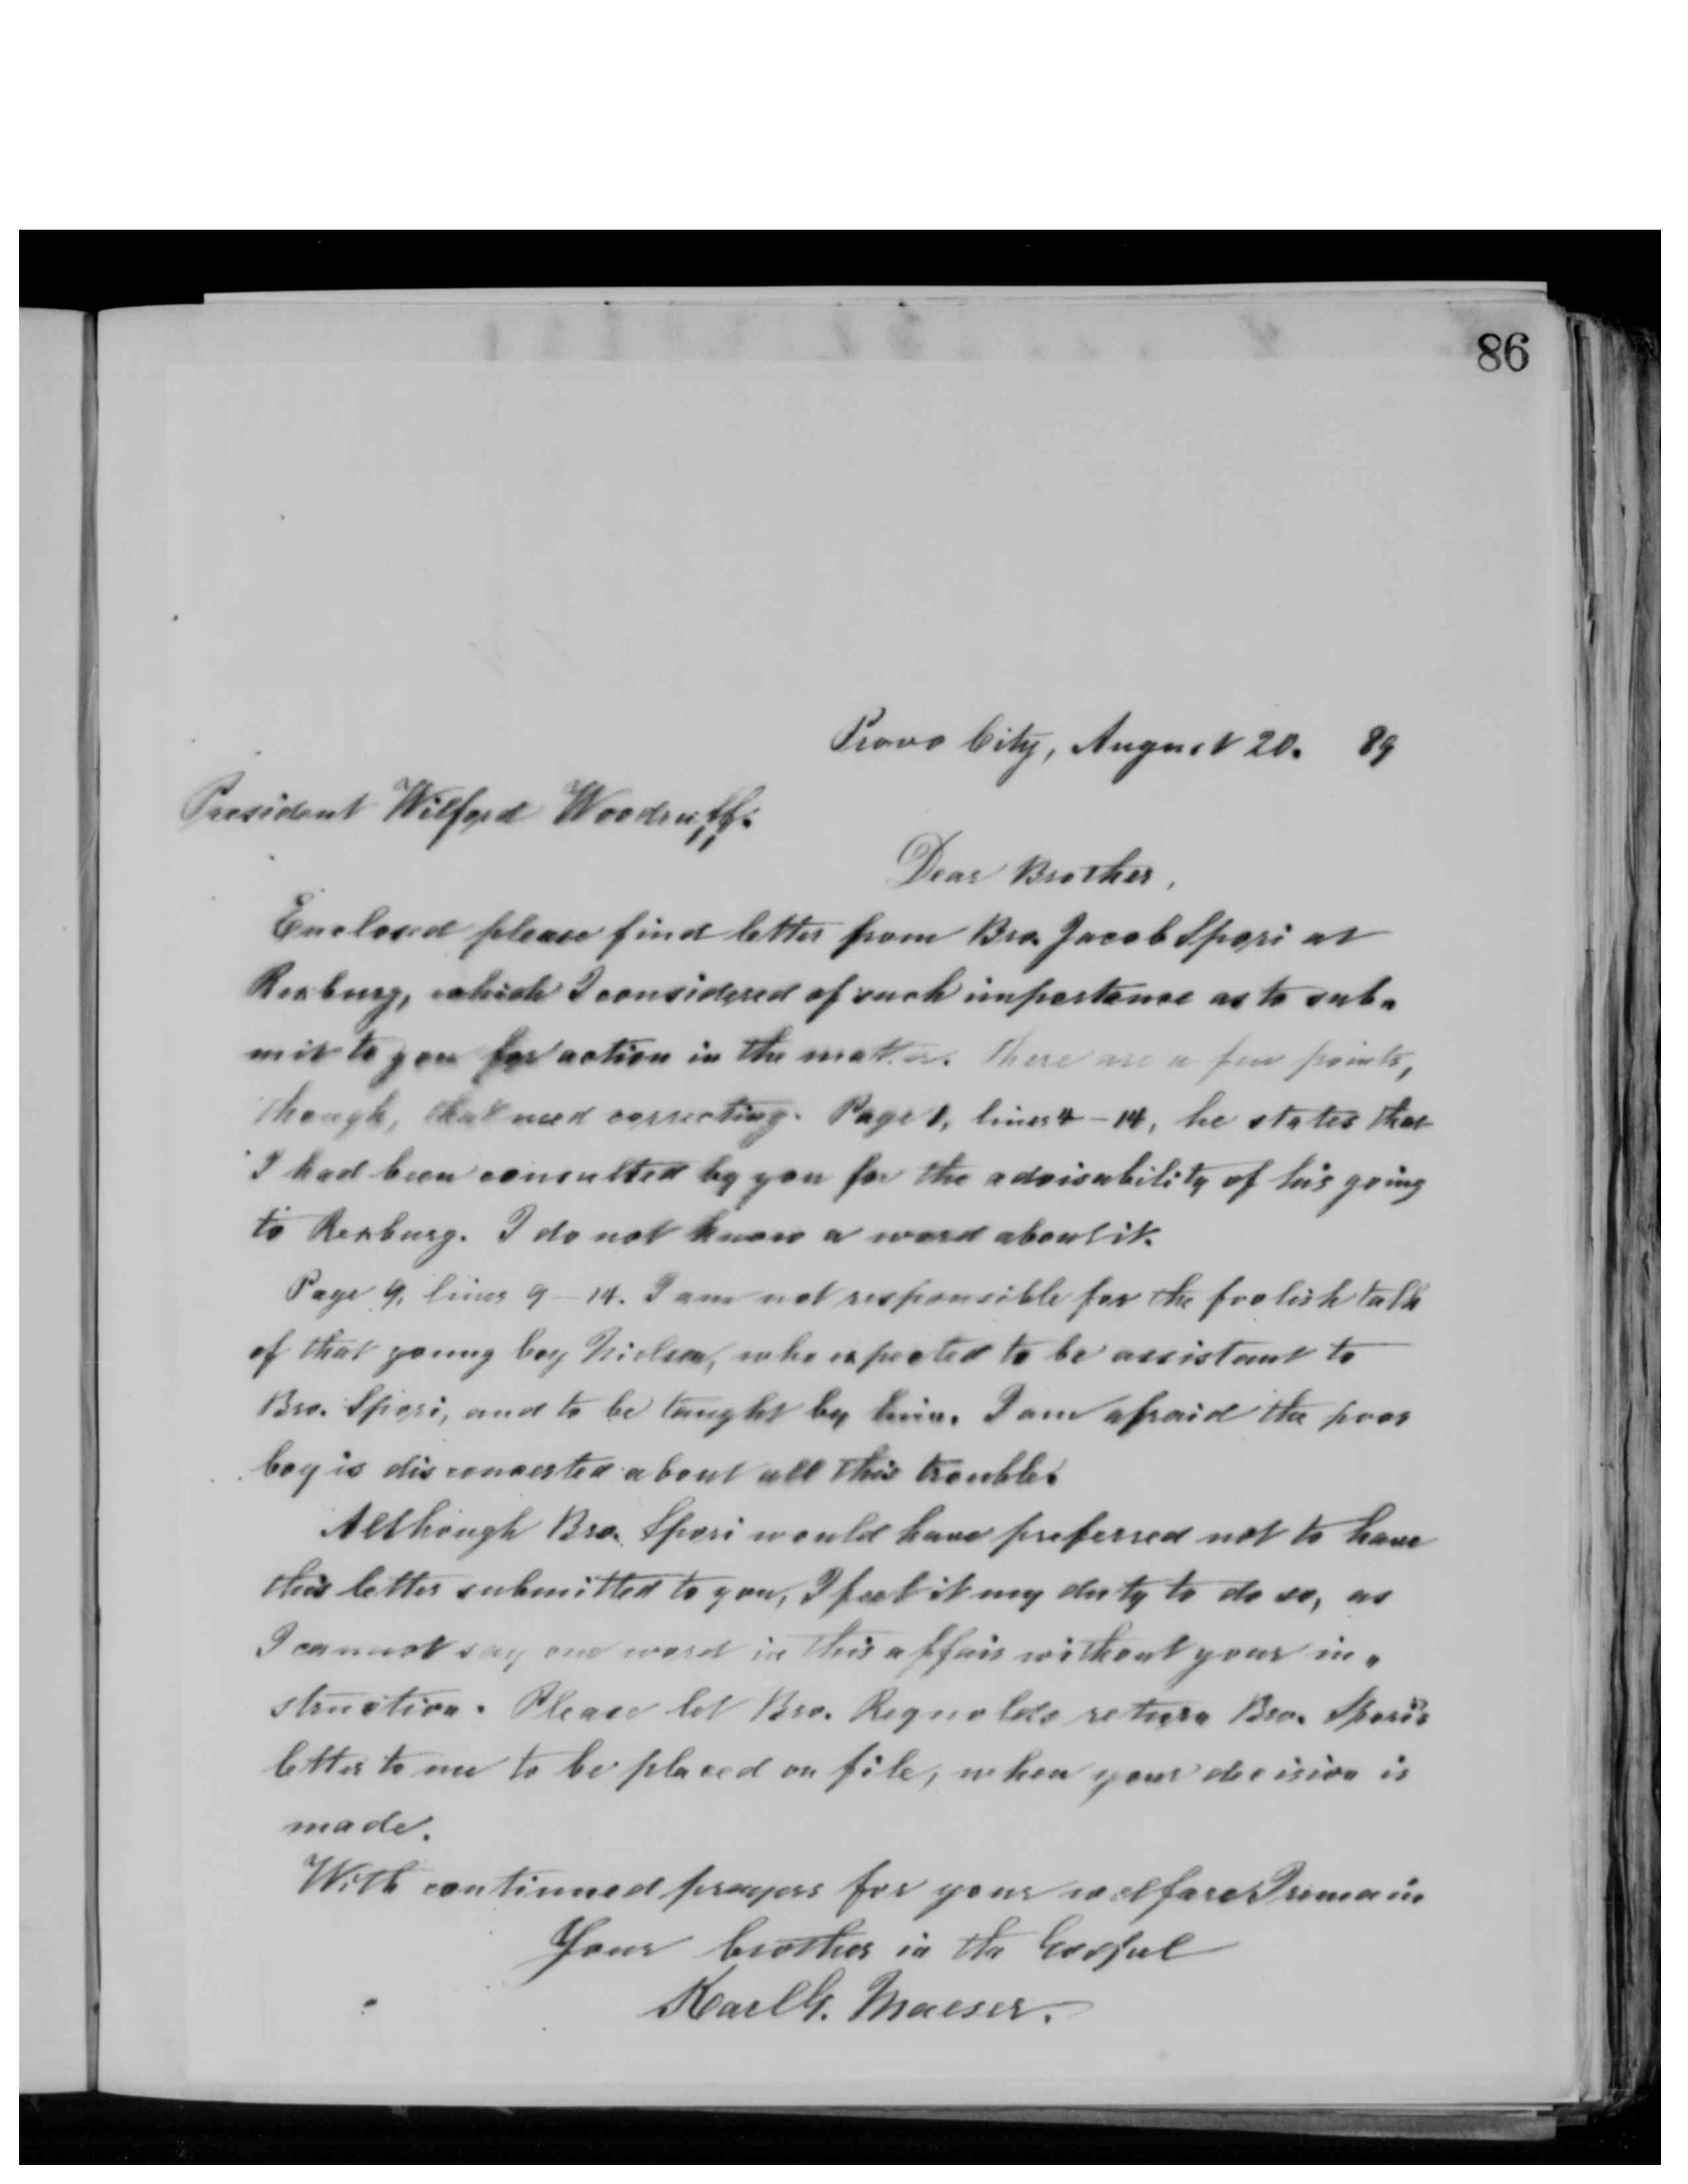 86
Provo City, August 20. 89
President Wilford Woodruff.
Dear Brother,
Enclosed please find letter from Bro. Jacob Spori at
Rexburg, which I considered of such importance as to sub-
mit to you for action in the matter. There are a few points,
though, that need correcting. Page 1, lines 4-14, he states that
I had been consulted by you for the advisability of his going
to Rexburg. I do not know a word about it.
Page 9, lines 9-14. I am not responsible for the foolish talk
of that young boy Nielsen, who expected to be assistant to
Bro. Spori, and to be taught by him. I am afraid the poor
boy is disconcerted about all this trouble.
Although Bro. Spori would have preferred not to have
this letter submitted to you, I feel it my duty to do so, as
I cannot say one word in this affair without your in-
struction. Please let Bro. Reynolds return Bro. Spori's
letter to me to be placed on file, when your decision is
made.
With continued prayers for your welfare I remain
Your brother in the Gospel
Karl G. Maeser.